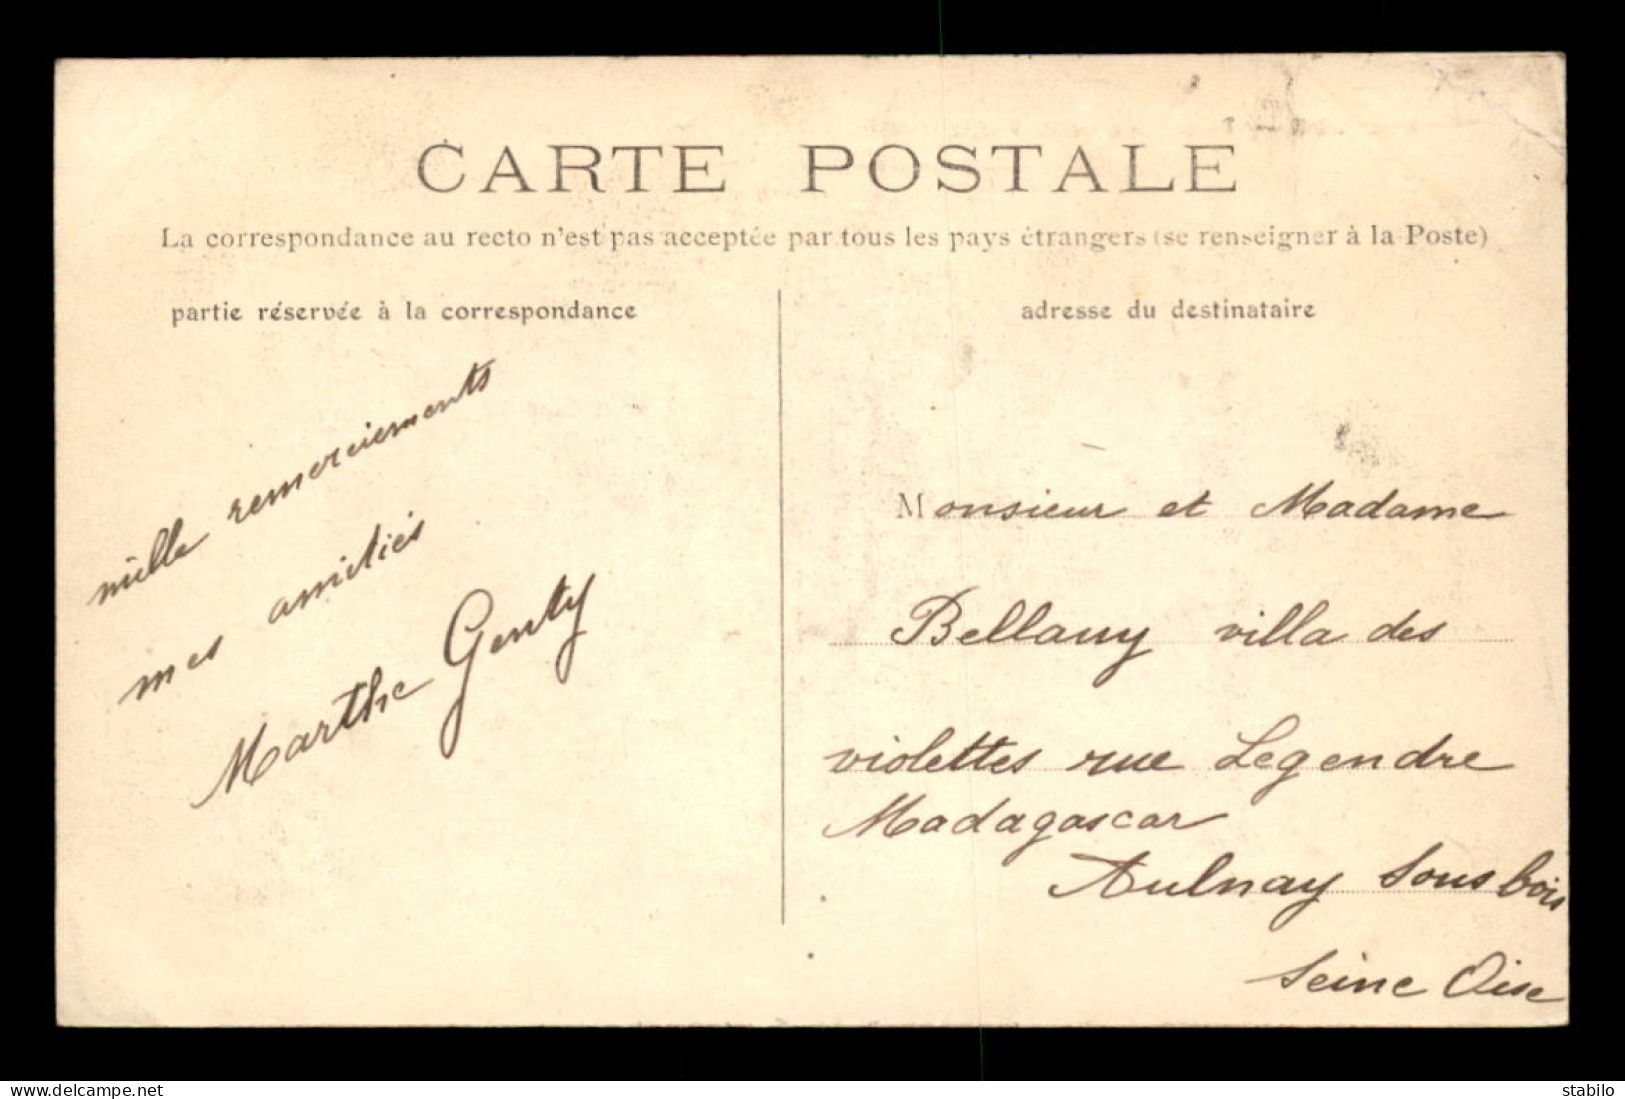 CARTE POSTALE
La correspondance au recto n'est pas acceptée par tous les pays étrangers (se renseigner à la Poste)
partie réservée à la correspondance
adresse du destinataire
mille remerciements
mes amitiés
Marthe Genty
Monsieur et Madame
Bellauy villa des
violettes rue Legendre
Madagascar
Aulnay Sous bois
Seine Oise
www.delcampe.net
stabilo